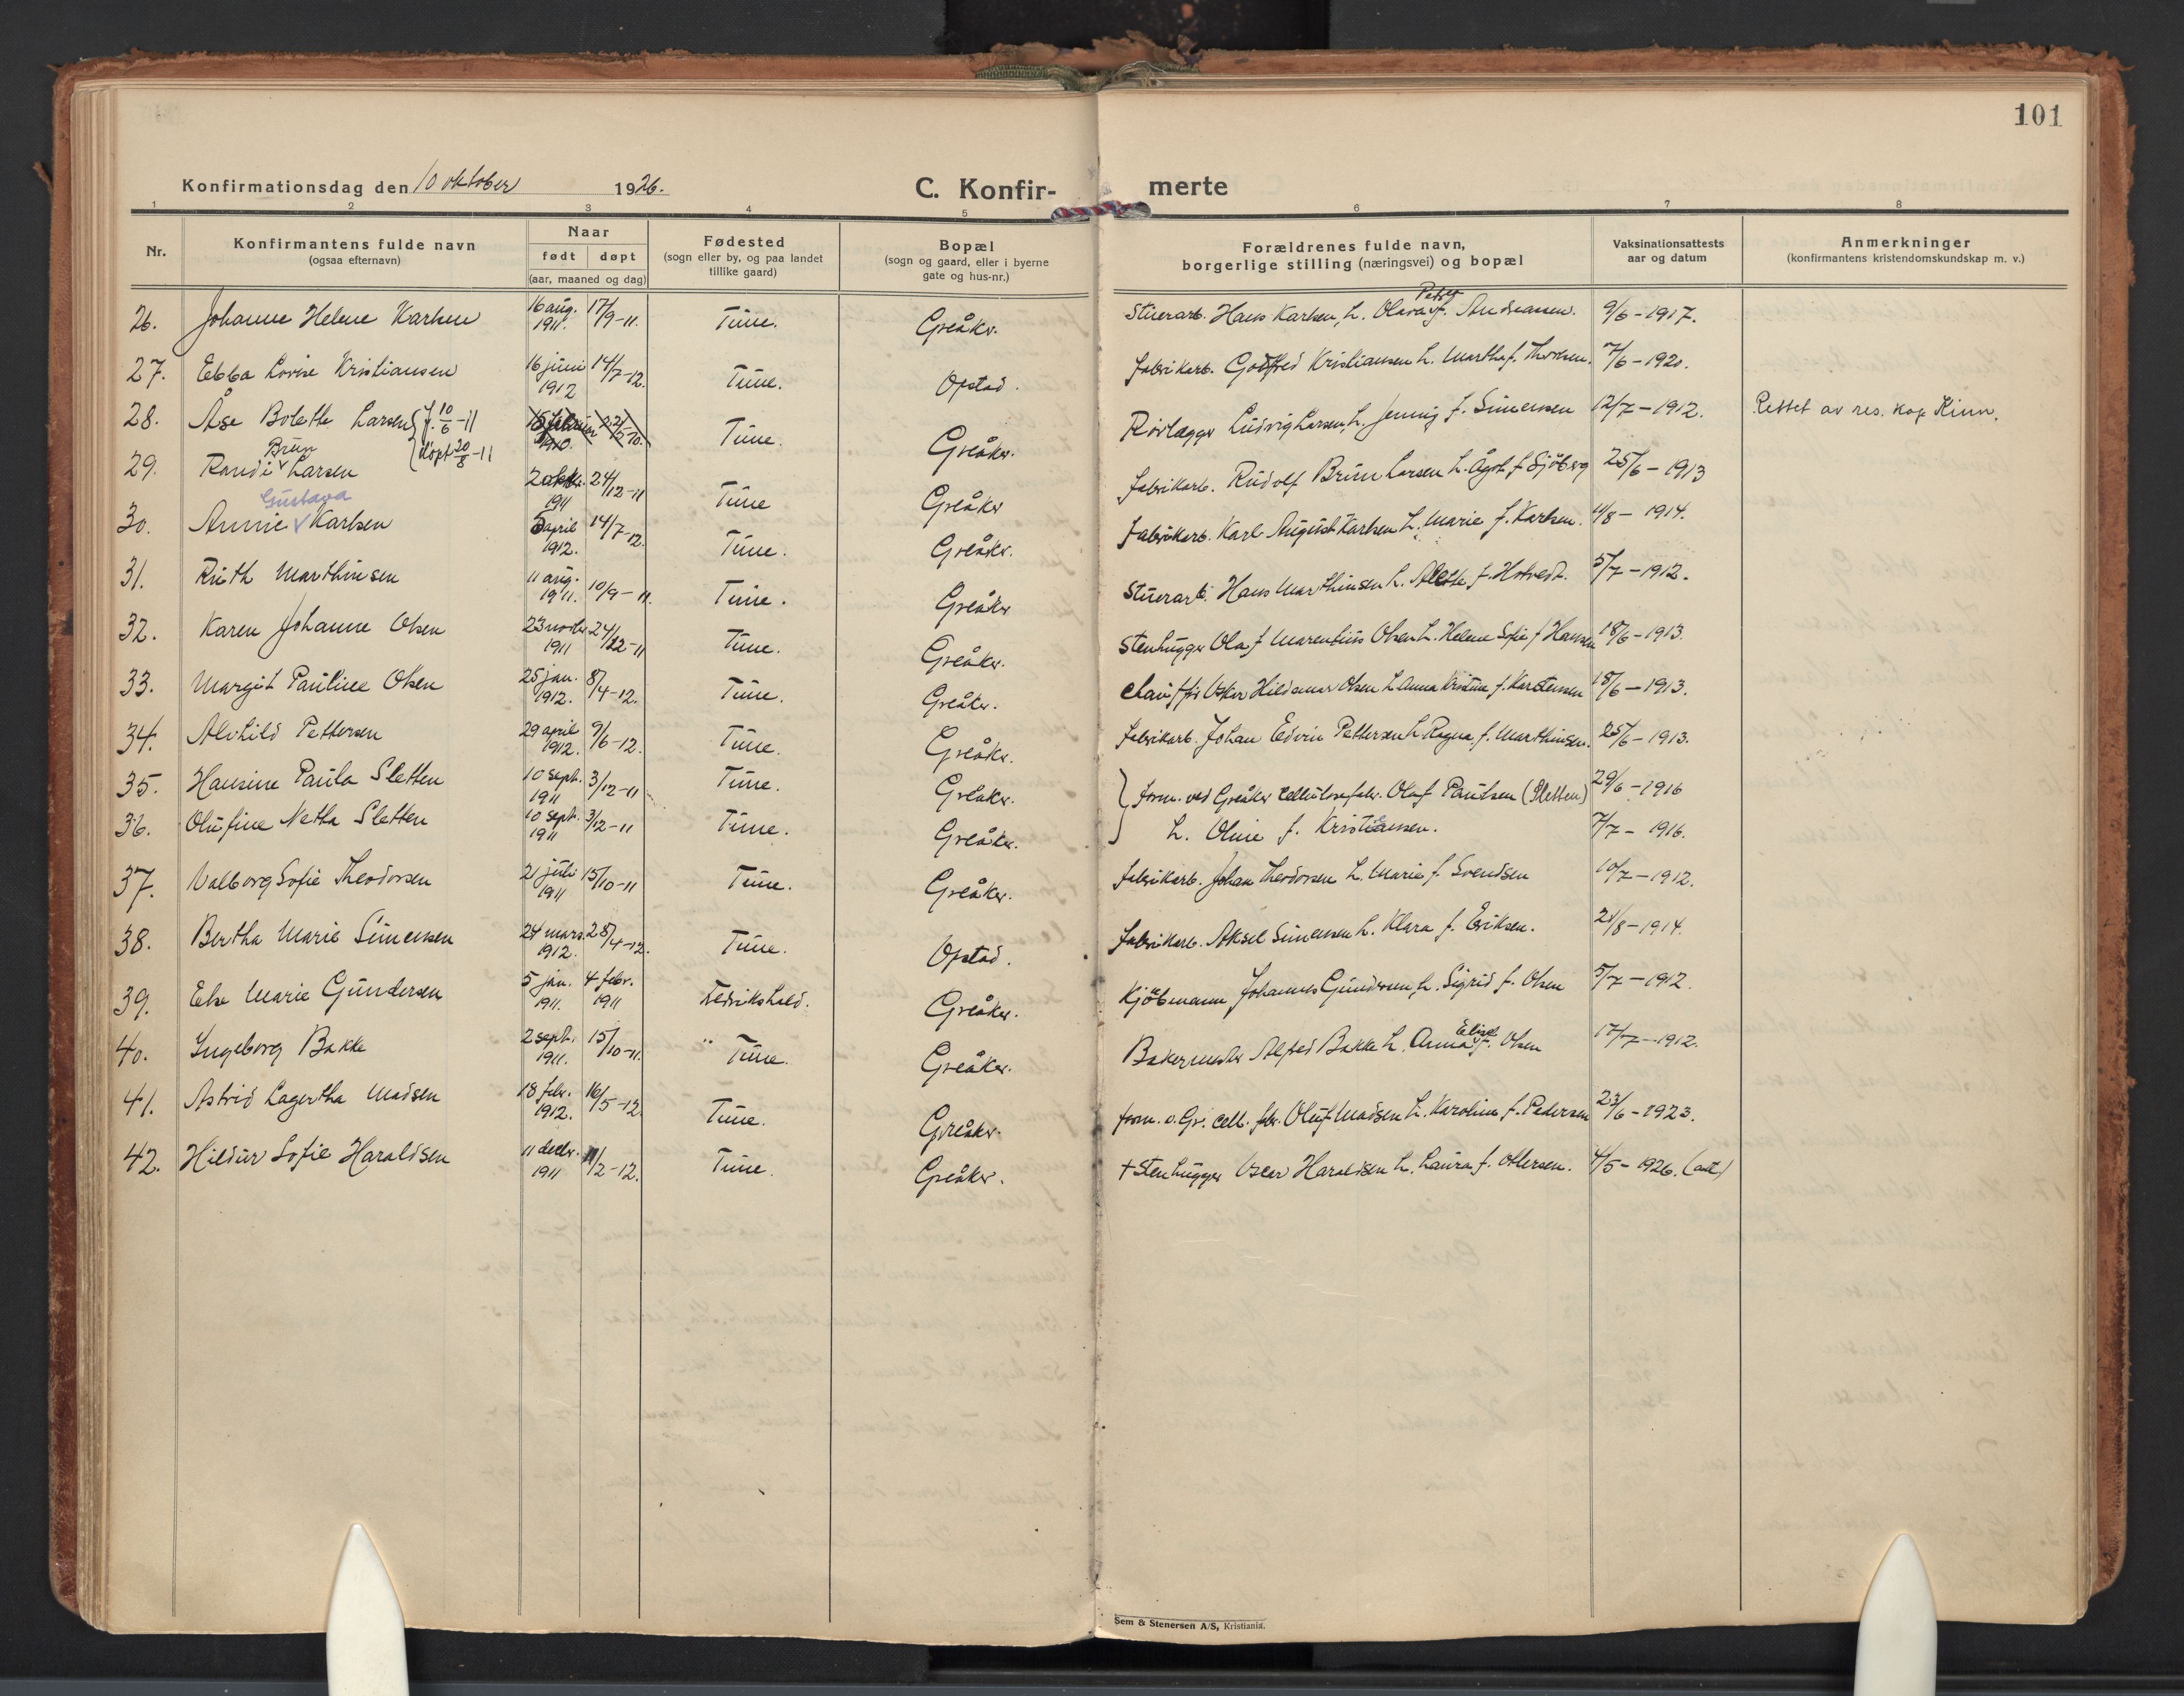 101
Konfirmationsdag den 10 oktober 1926.
C. Konfir-
merte
1 2 3 4 5 6 7 8
Nr.
Konfirmantens fulde navn
(ogsaa efternavn)
Naar
født døpt
(aar, maaned og dag)
Fødested
(sogn eller by, og paa landet
tillike gaard)
Bopæl
(sogn og gaard, eller i byerne
gate og hus-nr.)
Forældrenes fulde navn,
borgerlige stilling (næringsvei) og bopæl
Vaksinationsattests
aar og datum
Anmerkninger
(konfirmantens kristendomskundskap m. v.)
26. Johanne Helene Karlsen 16 aug. 1911. 17/9-11. Tune. Greåker. Stuerarb. Hans Karlsen, h. Olava Petra f. Andreassen. 9/6-1917.
27. Ebba Lovise Kristiansen 16 juni 1912 14/7-12. Tune. Opstad. fabrikarb. Gotfred Kristiansen h. Martha f. Thorsen. 7/6-1920.
28. Åse Bolette Larsen { f. 10/6-11 døpt 20/8-11 Tune. Greåker. Rørlægger Ludvig Larsen h. Jenny f. Simensen 12/7-1912. Rettet av res. kap Kinn.
29. Randi Brun Larsen 2 oktbr. 1911 24/12-11 Tune Greåker fabrikarb. Rudolf Brun Larsen h. Ågot f. Sjöberg 25/6-1913
30. Annie Gustava Karlsen 5 april 1912. 14/7-12. Tune. Greåker. fabrikarb. Karl August Karlsen h. Marie f. Karlsen. 11/8-1914.
31. Ruth Marthinsen 11 aug. 1911. 10/9-11. Tune. Greåker Stuerarb. Hans Marthinsen h. Alette f. Hotvedt. 5/7-1912.
32. Karen Johanne Olsen 23 novbr 1911 24/12-11 Tune. Greåker. Stenhugger Olaf Marentius Olsen h. Helene Sofie f Hansen 18/6-1913.
33. Margit Pauline Olsen 25 jan. 1912. 8/4-12. Tune. Greåker. Chauffør Oskar Hildemar Olsen h. Anna Kristine f. Karstensen 18/6-1913.
34. Alvhild Pettersen 29 april 1912. 9/6-12. Tune. Greåker. fabrikarb. Johan Edvin Pettersen h Ragna f. Marthinsen. 25/6-1913.
35. Hansine Paula Sletten 10 sept. 1911 3/12-11 Tune. Greåker. } form. ved Greåker Cellulosefabr. Olaf Paulsen (Sletten) 29/6-1916
36. Olufine Netha Sletten 10 sept. 1911 3/12-11 Tune. Greåker. h. Oline f. Kristiansen. 7/7-1916.
37. Valborg Sofie Theodorsen 21 juli 1911 15/10-11 Tune. Greåker. fabrikarb. Johan Theodorsen h. Marie f. Svendsen 10/7-1912.
38. Bertha Marie Simensen 24 mars 1912. 28/4-12. Tune. Opstad. fabrikarb. Aksel Simensen h. Klara f. Eriksen. 21/8-1914.
39. Else Marie Gundersen 5 jan. 1911. 4 febr. 1911 Fredrikshald. Greåker. Kjöbmann Johannes Gundersen h. Sigrid f. Olsen 5/7-1912.
40. Ingeborg Bakke 2 sept. 1911. 15/10-11. " Tune. Greåker. Bakermester Alfred Bakke h. Anna Elise f. Olsen 17/7-1912.
41. Astrid Lagertha Madsen 18 febr. 1912. 16/5-12. Tune. Greåker. form. v. Gr. cell. fabr. Oluf Madsen h. Karoline f. Pedersen 23/6-1923.
42. Hildur Sofie Haraldsen 11 decbr. 1911 11/2-12. Tune. Greåker. + Stenhugger Oscar Haraldsen h. Laura f. Ottersen. 4/5-1926. (att)
Sem & Stenersen A/S, Kristiania.